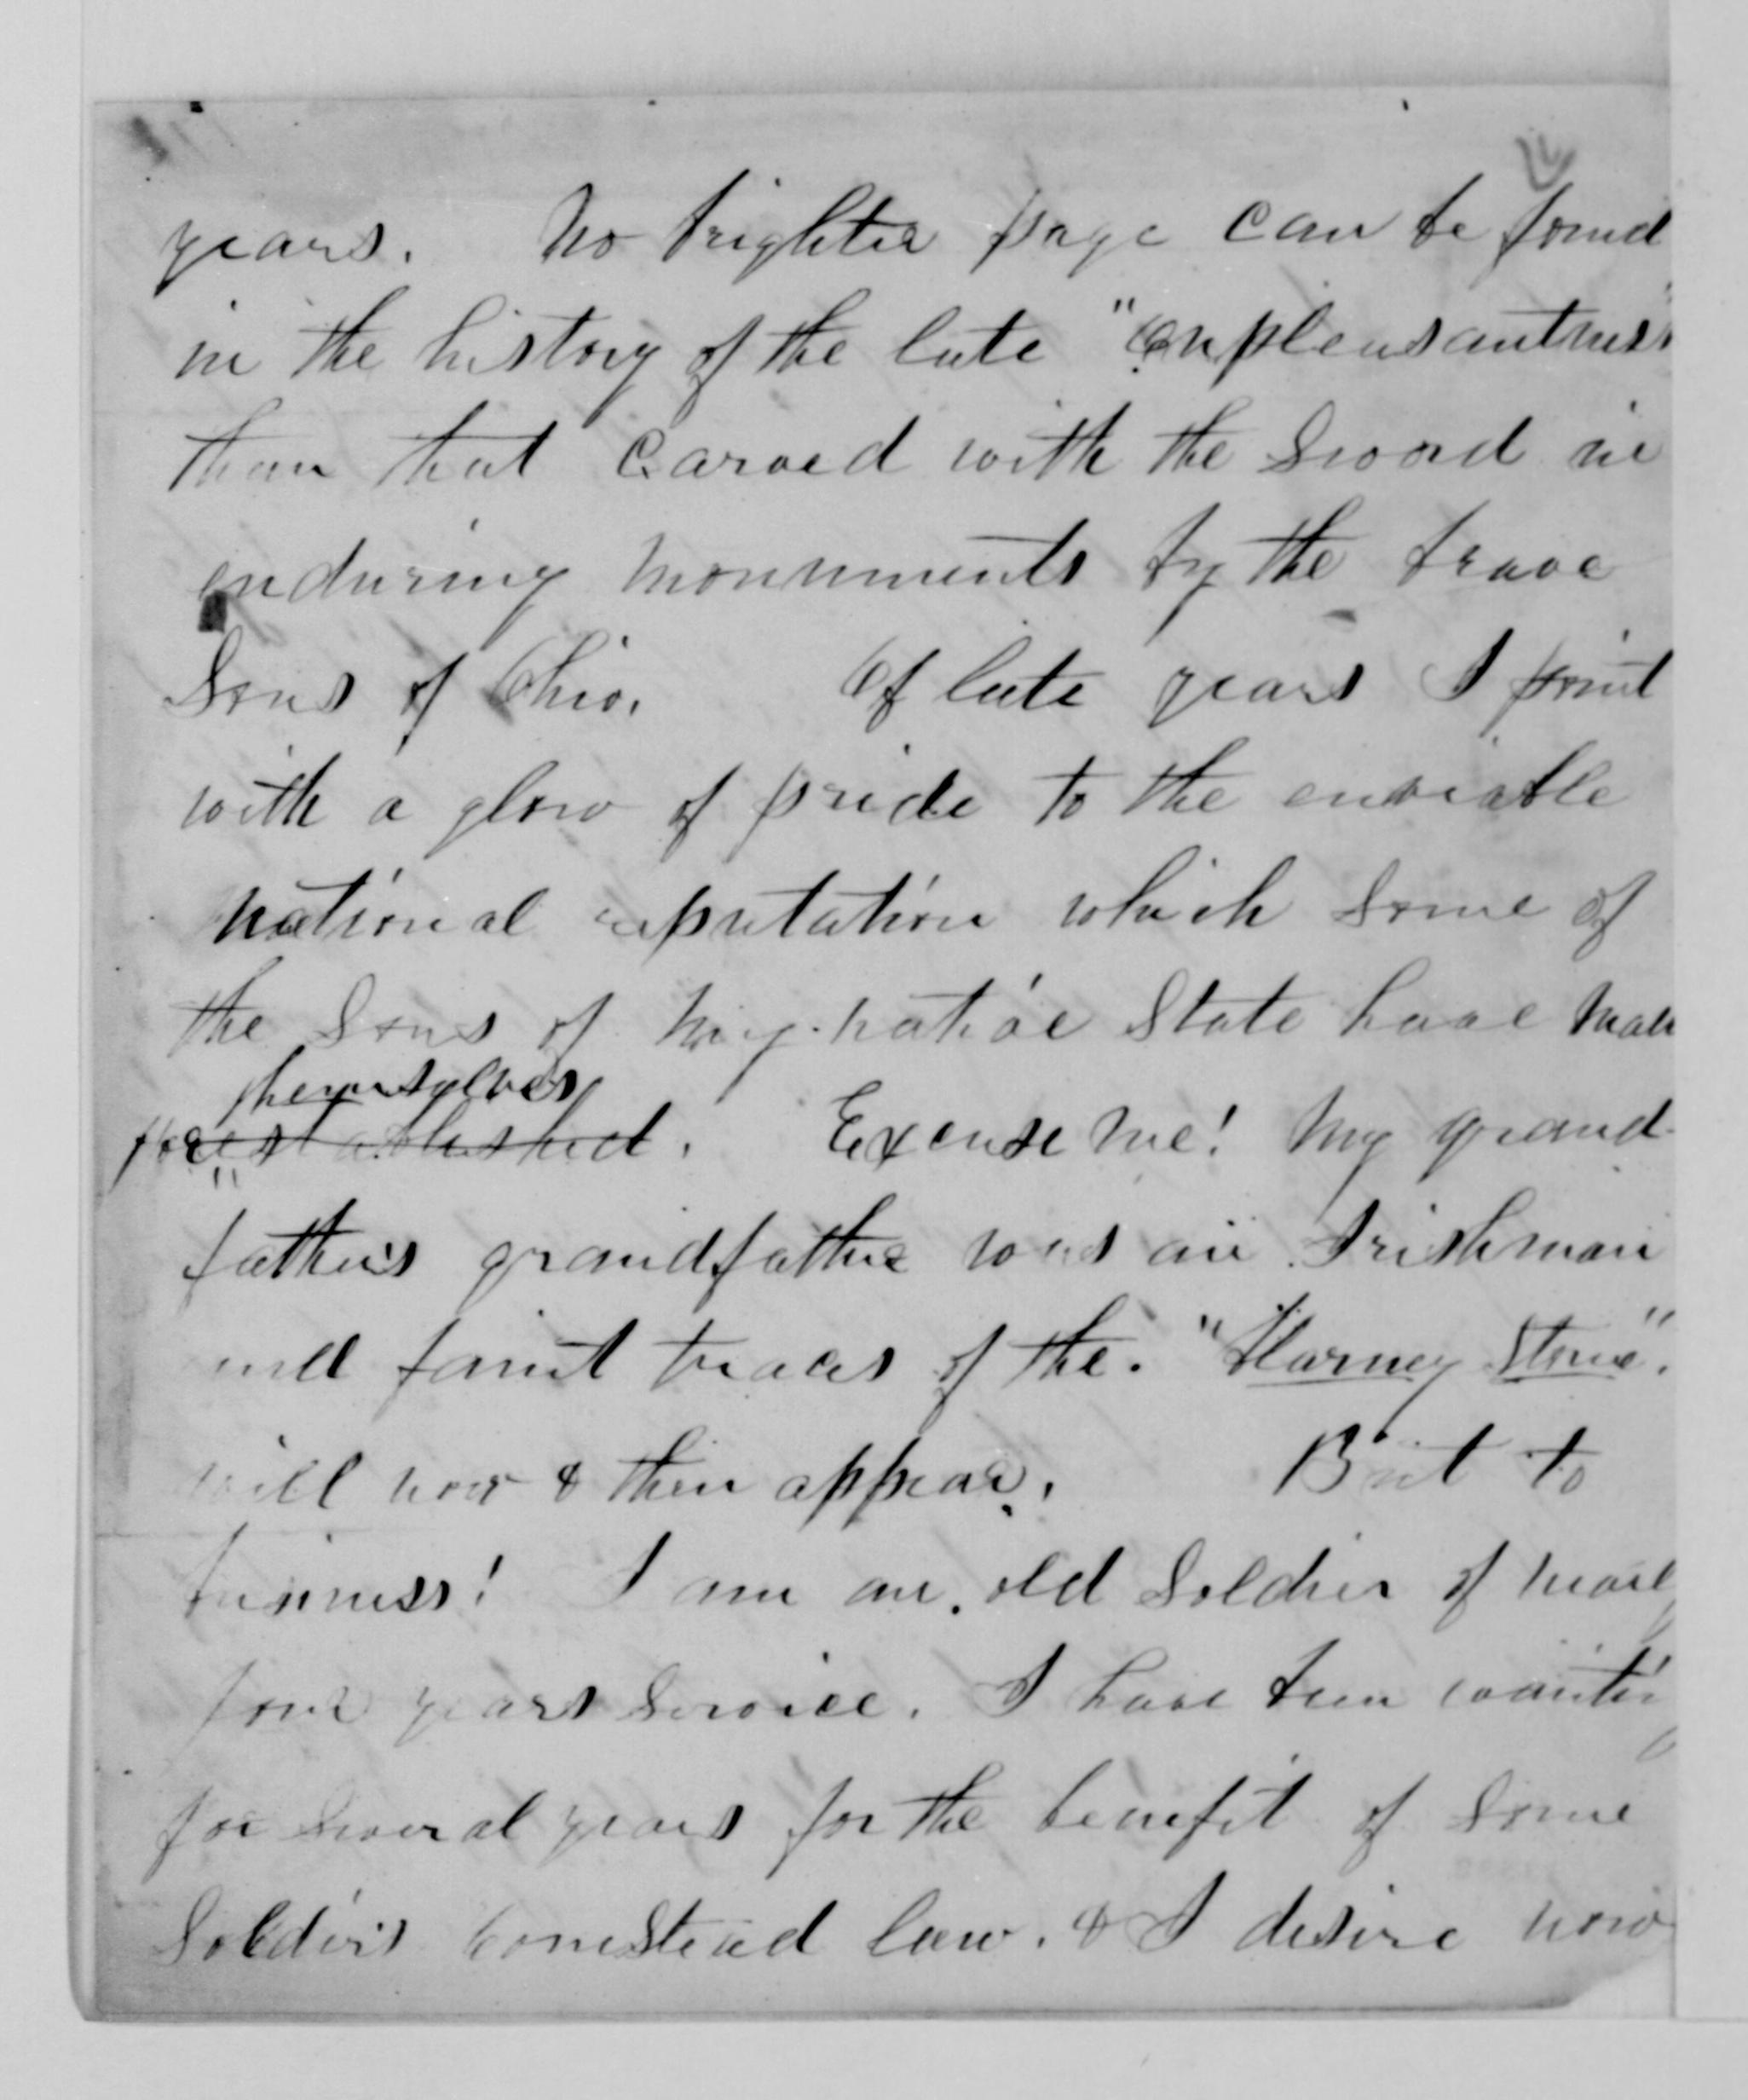 years. No brighter page can be found
in the history of the late "Unpleasantness"
than that carved with the Sword in
enduring monuments by the brave
Sons of Ohio. Of late years I point
with a glow of pride to the enviable
national reputation which some of
the Sons of my native State have made
themselves
for established. Excuse me! My grand-
father's grandfather was an Irishman
and faint traces of the "Blarney Stone".
will now & then appear. But to
business! I am an old Soldier of nearly
four years Service. I have been waiting
for several years for the benefit of some
Soldiers homestead law. & I desire now